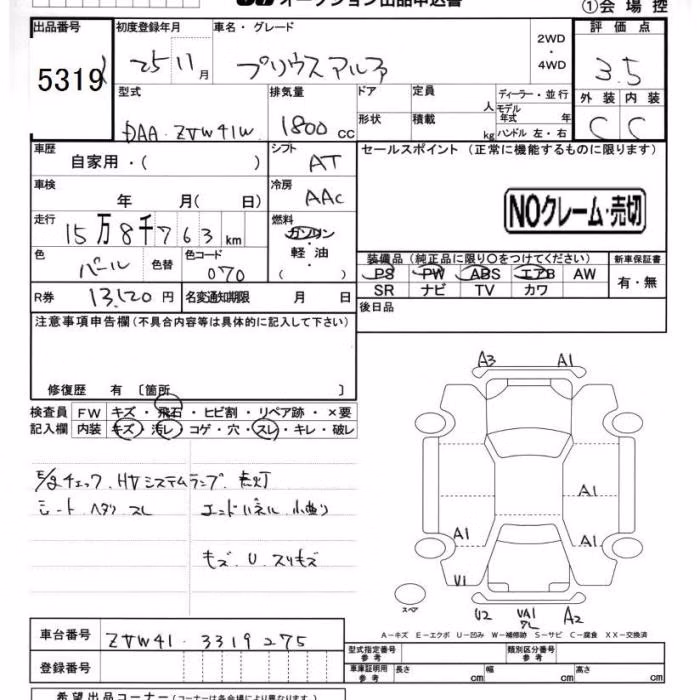 オークション出品申込書
①会場控
出品番号 初度登録年月 車名・グレード 評価点
5319 25 11月 プリウスアルファ 2WD・4WD 3.5
型式 排気量 ドア 定員 人 ディーラー・並行 外装 内装
DAA-ZVW41W 1800cc 形状 積載 kg モデル年式 年 ハンドル 左・右 C C
車歴 自家用・( ) シフト AT セールスポイント (正常に機能するものに限ります)
車検 年 月( 日) 冷房 AAC
NOクレーム・売切
走行 15万8千763km 燃料 ガソリン・軽油・( )
色 パール 色替 色コード 070
装備品 (純正品に限り○をつけてください) 新車保証書
PS PW ABS エアB AW 有・無
SR ナビ TV カワ
R券 13,120円 名変通知期限 月 日
後日品
注意事項申告欄 (不具合内容等は具体的に記入して下さい)
修復歴 有 〔箇所 〕
検査員記入欄 FW キズ・飛石・ヒビ割・リペア跡・×要
内装 キズ・汚レ・コゲ・穴・スレ・キレ・破レ
A3 A1
E/gチェック、HVシステムランプ、点灯
シート ヘタリ スレ エンドパネル 小曲り
キズ、U、スリキズ
A1
A1 A1
U1
スペア
U2 A2
A-キズ E-エクボ U-凹み W-補修跡 S-サビ C-腐食 XX-交換済
車台番号 ZVW41-3319275
型式指定番号 参考 類別区分番号 参考
登録番号 車庫証明用 参考 長さ cm 幅 cm 高さ cm
希望出品コーナー (コーナーは各会場により異なります)